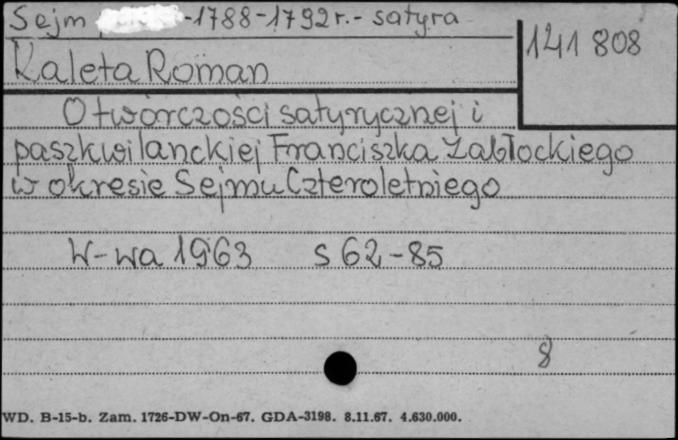 Sejm -1788-1792r.- satyra
141 808
Kaleta Roman
O twórczości satyrycznej i
paszkwilanckiej Franciszka Zabłockiego
w okresie Sejmu Czteroletniego
W-wa 1963 s 62-85
8
WD. B-15-b. Zam. 1726-DW-On-67. GDA-3198. 8.11.67. 4.630.000.